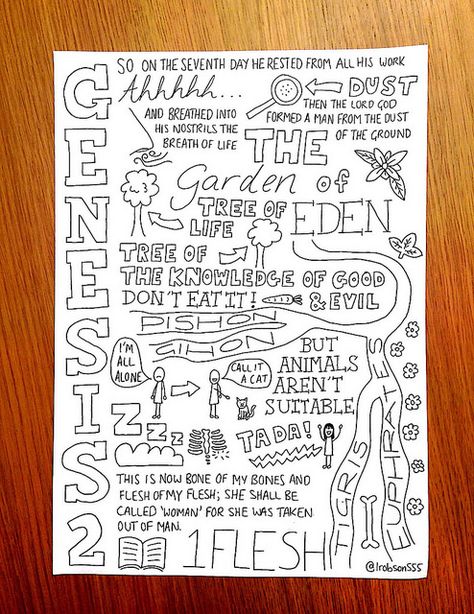 GENESIS 2
SO ON THE SEVENTH DAY HE RESTED FROM ALL HIS WORK
Ahhhhh...
DUST
THEN THE LORD GOD
FORMED A MAN FROM THE DUST
OF THE GROUND
AND BREATHED INTO
HIS NOSTRILS THE
BREATH OF LIFE
THE
Garden of
EDEN
TREE OF
LIFE
TREE OF
THE KNOWLEDGE OF GOOD
& EVIL
DON'T EAT IT!
PISHON
GIHON
I'M
ALL
ALONE
CALL IT
A CAT
BUT
ANIMALS
AREN'T
SUITABLE
ZZZZ
TADA!
TIGRIS
EUPHRATES
THIS IS NOW BONE OF MY BONES AND
FLESH OF MY FLESH; SHE SHALL BE
CALLED 'WOMAN' FOR SHE WAS TAKEN
OUT OF MAN.
1 FLESH
@lrobson555